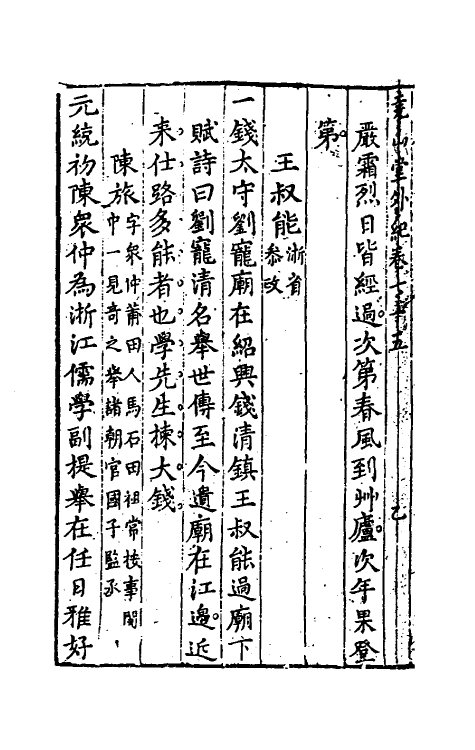 堯山堂外紀卷七十五
乙
嚴霜烈日皆經過次第春風到艸廬次年果登
第
王叔能浙省叅政
一錢太守劉寵廟在紹興錢清鎮王叔能過廟下
賦詩曰劉寵清名舉世傳至今遺廟在江邊近
来仕路多能者也學先生揀大錢
陳旅字衆仲莆田人馬石田祖常按事閩中一見奇之舉諸朝官國子監丞
元統初陳衆仲為浙江儒學副提舉在任日雅好